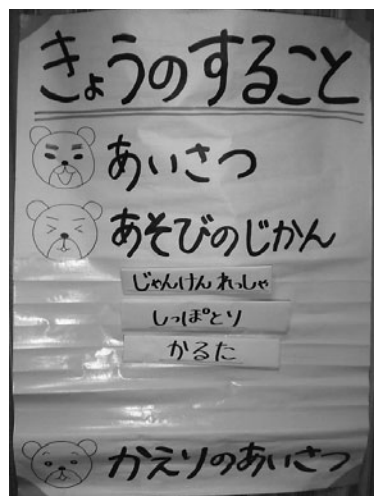 きょうのすること
あいさつ
あそびのじかん
じゃんけんれっしゃ
しっぽとり
かるた
かえりのあいさつ